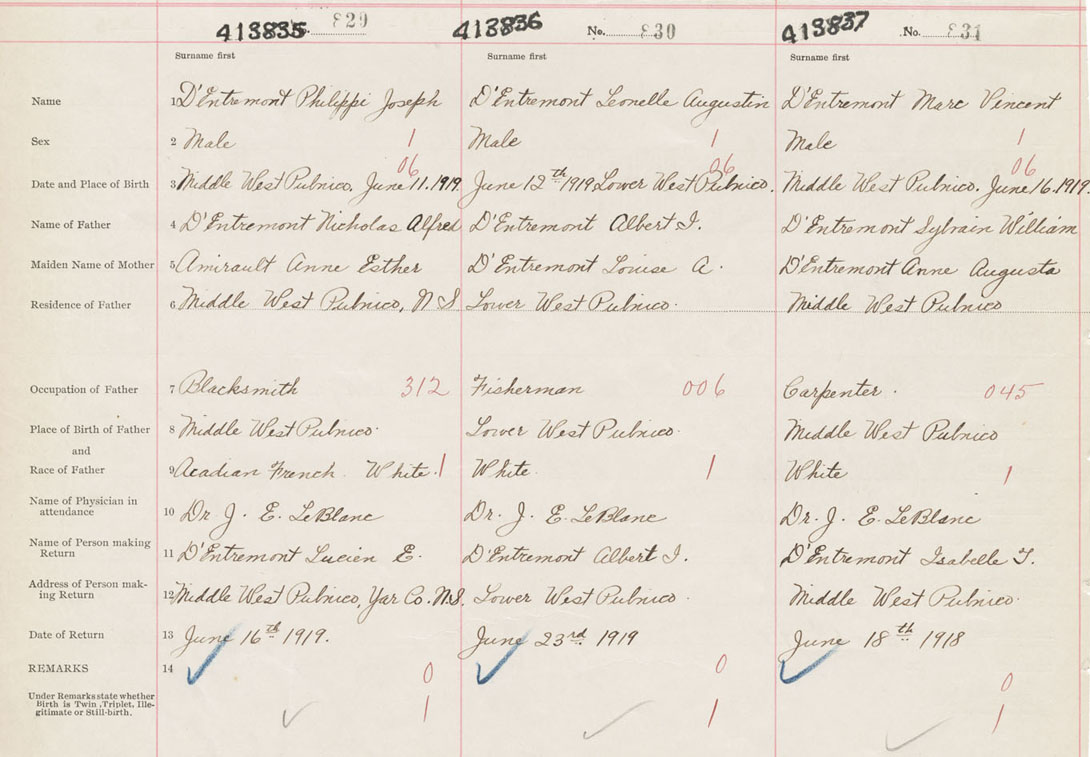 413835 829 413836 No. 830 413837 No. 831
Surname first Surname first Surname first
Name 1 D'Entremont Philippi Joseph D'Entremont Leonelle Augustin D'Entremont Marc Vincent
Sex 2 Male 1 Male 1 Male 1
06 06 06
Date and Place of Birth 3 Middle West Pubnico, June 11. 1919. June 12th 1919 Lower West Pubnico. Middle West Pubnico. June 16. 1919.
Name of Father 4 D'Entremont Nicholas Alfred D'Entremont Albert I. D'Entremont Sylvain William
Maiden Name of Mother 5 Amirault Anne Esther D'Entremont Louise A. D'Entremont Anne Augusta
Residence of Father 6 Middle West Pubnico, N S Lower West Pubnico. Middle West Pubnico
Occupation of Father 7 Blacksmith 312 Fisherman 006 Carpenter. 045
Place of Birth of Father 8 Middle West Pubnico. Lower West Pubnico. Middle West Pubnico
and
Race of Father 9 Acadian French. White. 1 White. 1 White 1
Name of Physician in
attendance 10 Dr. J. E. LeBlanc Dr. J. E. LeBlanc Dr. J. E. LeBlanc
Name of Person making
Return 11 D'Entremont Lucien E. D'Entremont Albert I. D'Entremont Isabelle T.
Address of Person mak-
ing Return 12 Middle West Pubnico, Yar Co. N.S. Lower West Pubnico. Middle West Pubnico.
Date of Return 13 June 16th 1919. June 23rd 1919 June 18th 1918
REMARKS 14 0 0 0
Under Remarks state whether
Birth is Twin, Triplet, Ille-
gitimate or Still-birth. 1 1 1